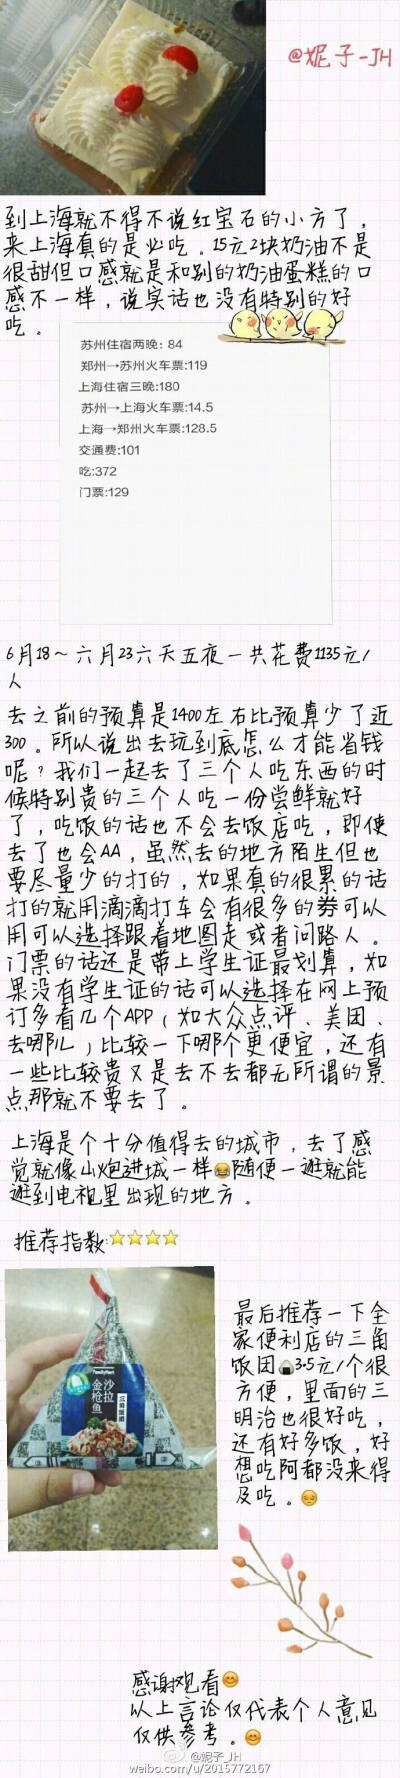 @妮子-JH
到上海就不得不说红宝石的小方了，
来上海真的是必吃。15元2块奶油不是
很甜但口感就是和别的奶油蛋糕的口
感不一样，说实话也没有特别的好
吃。
苏州住宿两晚：84
郑州→苏州火车票:119
上海住宿三晚:180
苏州→上海火车票:14.5
上海→郑州火车票:128.5
交通费:101
吃:372
门票:129
6月18～六月23六天五夜一共花费1135元/
人
去之前的预算是1400左右比预算少了近
300。所以说出去玩到底怎么才能省钱
呢？我们一起去了三个人吃东西的时
候特别贵的三个人吃一份尝鲜就好
了，吃饭的话也不会去饭店吃，即使
去了也会AA，虽然去的地方陌生但也
要尽量少的打的，如果真的很累的话
打的就用滴滴打车会有很多的券可以
用可以选择跟着地图走或者问路人。
门票的话还是带上学生证最划算，如
果没有学生证的话可以选择在网上预
订多看几个APP（如大众点评、美团、
去哪儿）比较一下哪个更便宜，还有
一些比较贵又是去不去都无所谓的景
点那就不要去了。
上海是个十分值得去的城市，去了感
觉就像山炮进城一样😂随便一逛就能
逛到电视里出现的地方。
推荐指数:⭐⭐⭐⭐
FamilyMart
沙拉
金枪鱼
三角饭团
最后推荐一下全
家便利店的三角
饭团🍙3.5元/个很
方便，里面的三
明治也很好吃，
还有好多饭，好
想吃阿都没来得
及吃。😔
感谢观看😊
以上言论仅代表个人意见
仅供参考。😊
@妮子_JH
weibo.com/u/2015772167